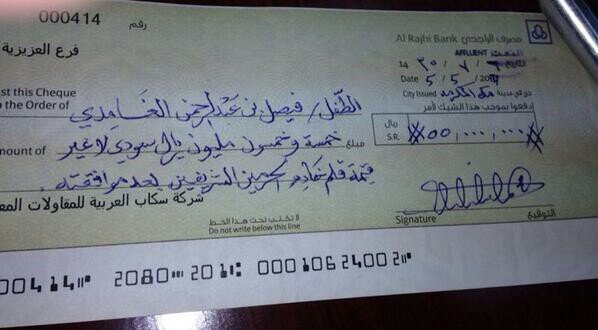 000414 رقم
مصرف الراجحي Al Rajhi Bank
فرع العزيزية
AFFLUENT
14
Date 5/5/
City Issued مكة المكرمة حرر في مدينة
st this Cheque
o the Order of الطفل/ فيصل بن عبدالرحمن الغامدي
إدفعوا بموجب هذا الشيك لأمر
ريال
S.R. 55,000,000
amount of خمسة وخمسون مليون ريال سعودي لا غير مبلغ
قيمة قلم خادم الحرمين الشريفين بعد موافقته.
شركة سكاب العربية للمقاولات المع
لا تكتب تحت هذا الخط
Do not write below this line
Signature التوقيع
00414 2080 201 0001062400 2